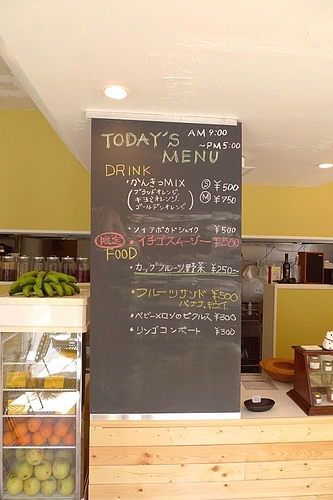 TODAY'S
MENU
AM 9:00
~PM 5:00
DRINK
・かんきつMIX
(ブラッドオレンジ、
キヨミオレンジ、
ゴールデンオレンジ)
Ⓢ ¥500
Ⓜ ¥750
・ソイアボカドシェイク ¥500
限定・イチゴスムージー ¥500
FOOD
・カップフルーツ野菜 ¥250~
・フルーツサンド ¥500
バナナ、キウイ
・ベビーメロンのピクルス ¥300
・リンゴコンポート ¥300